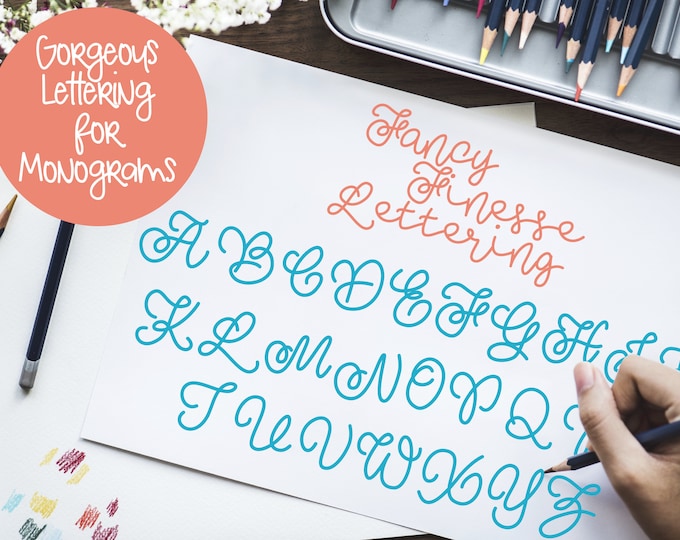 Gorgeous
Lettering
for
Monograms
Fancy
Finesse
Lettering
A B C D E F G H I
K L M N O P Q
T U V W X Y Z